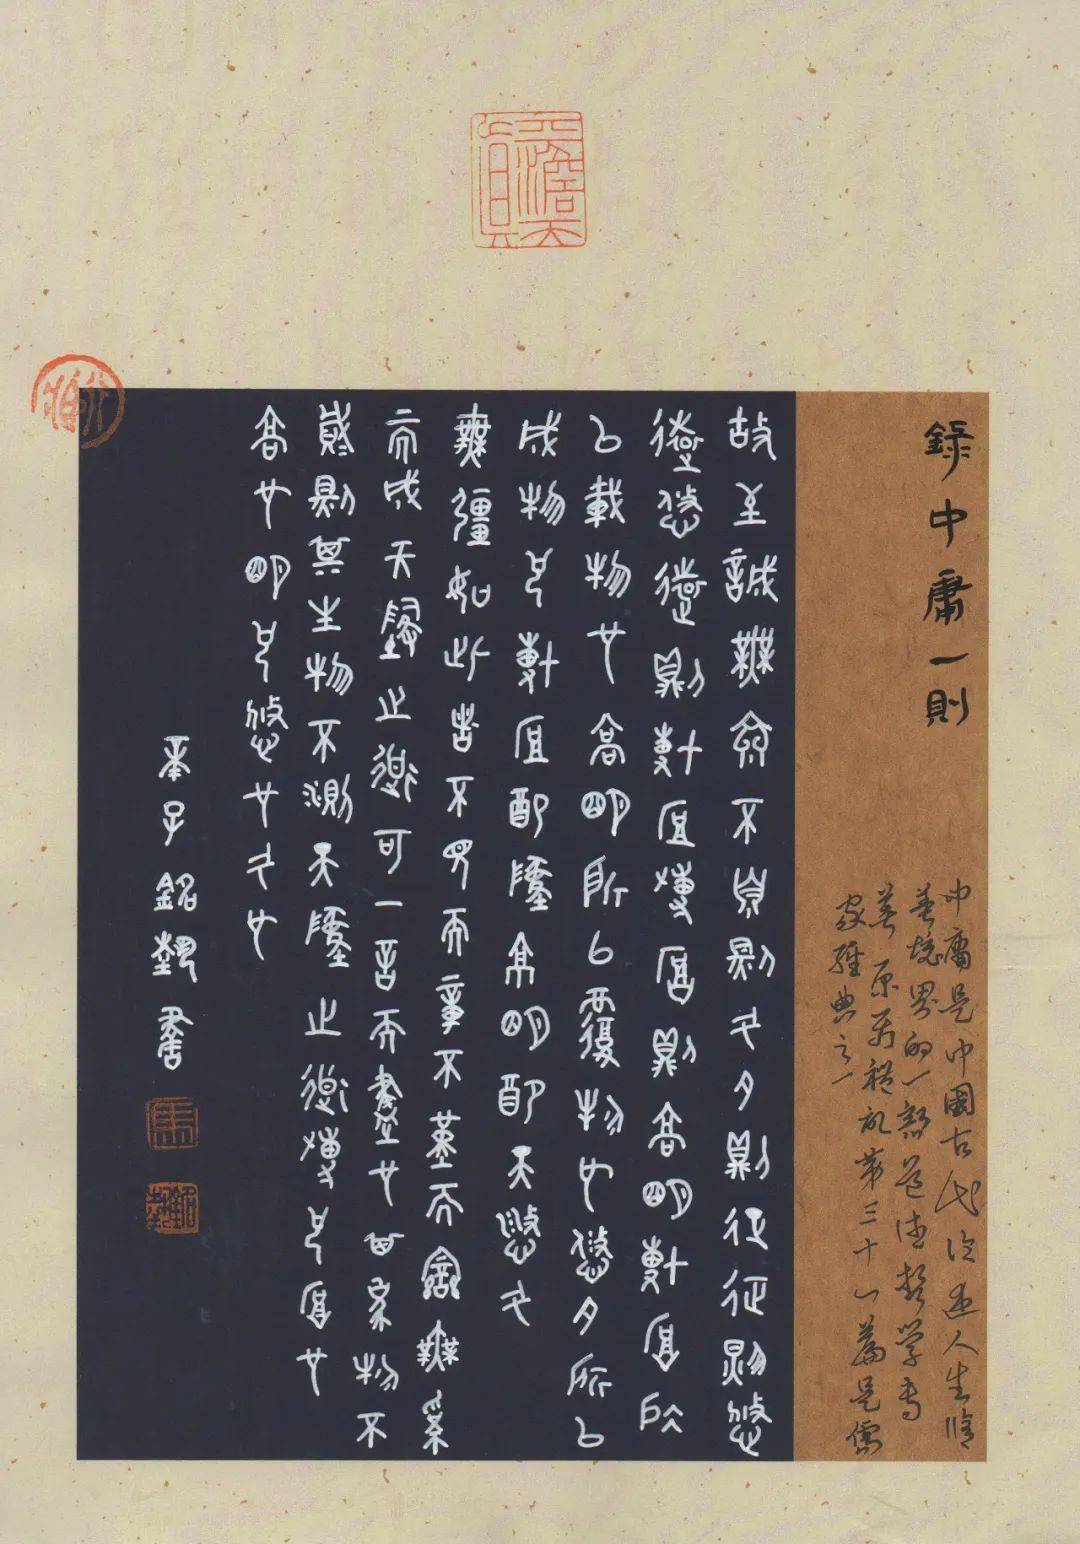 錄中庸一則
中庸是中國古代论述人生修
養境界的一部道德哲學专
著 原为禮记第三十一篇是儒
家經典之一
故至誠無息不息則久久則徵徵則悠
遠悠遠則博厚博厚則高明博厚所
以載物也高明所以覆物也悠久所以
成物也博厚配地高明配天悠久
無疆如此者不見而章不動而變無為
而成天地之道可一言而盡也其為物不
貳則其生物不測天地之道博也厚也
高也明也悠也久也
銘 書
馬